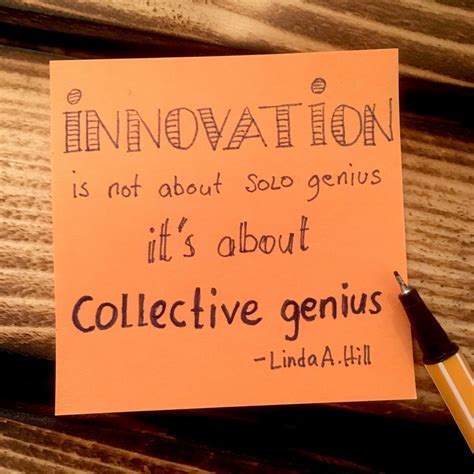 iNNOVATiON
is not about solo genius
it's about
Collective genius
-Linda A. Hill